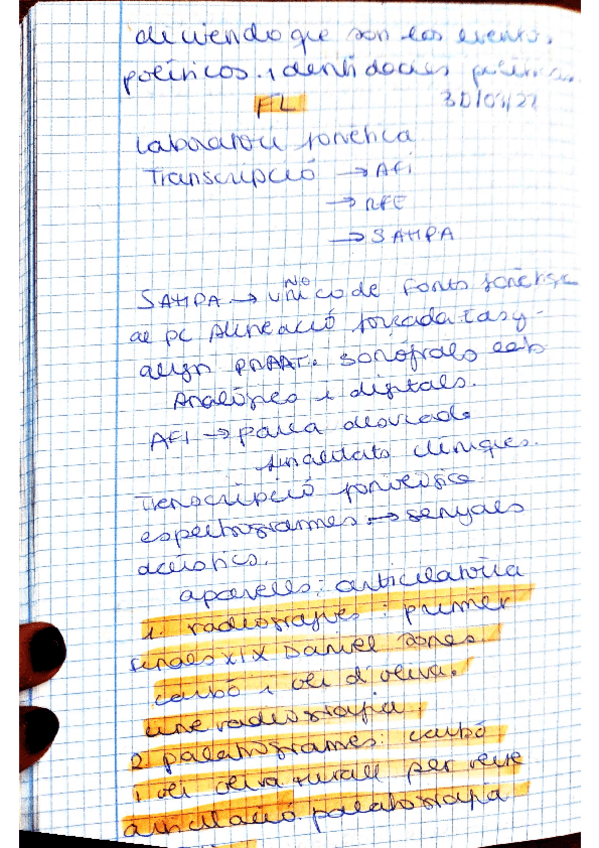 diciendo que son los events
polítics. identidades
FL 30/09/22
Laboratori fonètica
Transcripció → AFI
→ RFE
→ SAMPA
SAMPA → NO unicode Fonts fonètiques
al pc Alineació forçada Easy-
align PRAAT.
Analògics i digitals.
AFI → parla desviada
finalitats clíniques.
Transcripció fonètica
espectrogrames → senyals
acústics.
aparells: articulatòria
1. radiografies: primer
finals XIX Daniel Jones
carbó i oli d'oliva.
cineradiografia.
2 palatogrames: carbó
i oli oliva mirall per veure
articulació palatografia